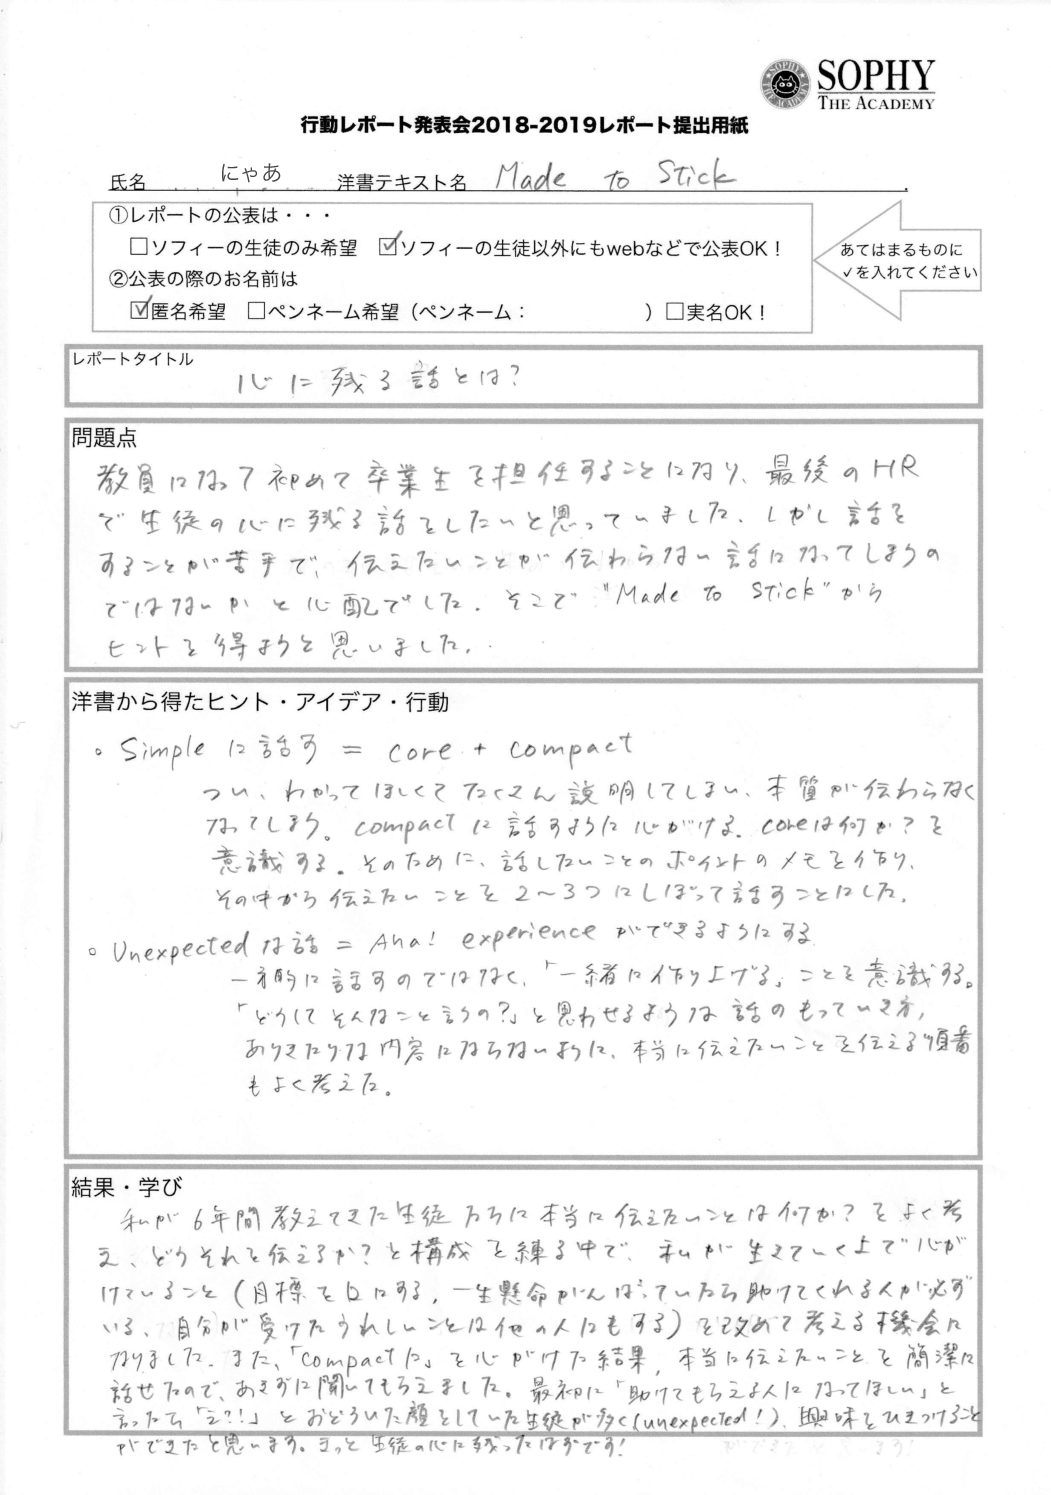 SOPHY
THE ACADEMY
行動レポート発表会2018-2019レポート提出用紙
氏名 にゃあ 洋書テキスト名 Made to Stick
①レポートの公表は・・・
□ソフィーの生徒のみ希望 ☑ソフィーの生徒以外にもwebなどで公表OK！
②公表の際のお名前は
☑匿名希望 □ペンネーム希望（ペンネーム： ）□実名OK！
あてはまるものに
✓を入れてください
レポートタイトル
心に残る話とは？
問題点
教員になって初めて卒業生を担任することになり、最後のHR
で生徒の心に残る話をしたいと思っていました。しかし話を
することが苦手で、伝えたいことが伝わらない話になってしまうの
ではないかと心配でした。そこで"Made to Stick"から
ヒントを得ようと思いました。
洋書から得たヒント・アイデア・行動
○ Simpleに話す = core + compact
つい、わかってほしくてたくさん説明してしまい、本質が伝わらなく
なってしまう。compactに話すように心がける。coreは何か？を
意識する。そのために、話したいことのポイントのメモを作り、
その中から伝えたいことを2〜3つにしぼって話すことにした。
○ Unexpectedな話 = Aha! experienceができるようにする
一方的に話すのではなく、「一緒に作り上げる」ことを意識する。
「どうしてそんなこと言うの？」と思わせるような話のもっていき方，
ありきたりな内容にならないように、本当に伝えたいことを伝える順番
もよく考えた。
結果・学び
私が6年間教えてきた生徒たちに本当に伝えたいことは何か？をよく考
え、どうそれを伝えるか？と構成を練る中で、私が生きていく上で心が
けていること（目標を口にする，一生懸命がんばっていたら助けてくれる人が必ず
いる、自分が受けたうれしいことは他の人にもする）を改めて考える機会に
なりました。また、「compactに」を心がけた結果，本当に伝えたいことを簡潔に
話せたので、あきずに聞いてもらえました。最初に「助けてもらえる人になってほしい」と
言ったら「え？！」とおどろいた顔をしていた生徒が多く(unexpected！)、興味をひきつけること
ができたと思います。きっと生徒の心に残ったはずです！